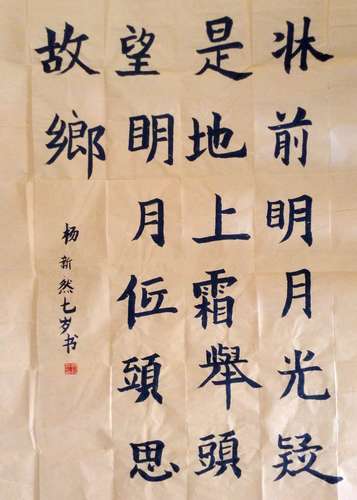 牀前明月光疑
是地上霜舉頭
望明月低頭思
故鄉
杨新然七岁书